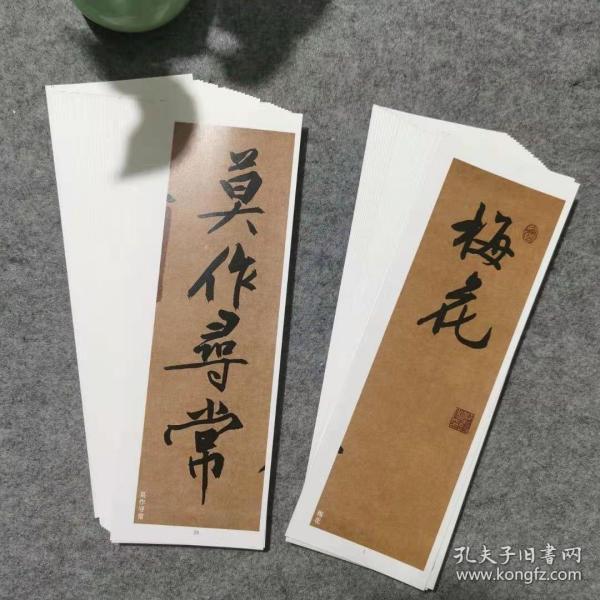 莫作尋常
莫作寻常
梅花
梅花
孔夫子旧書网
www.kongfz.com